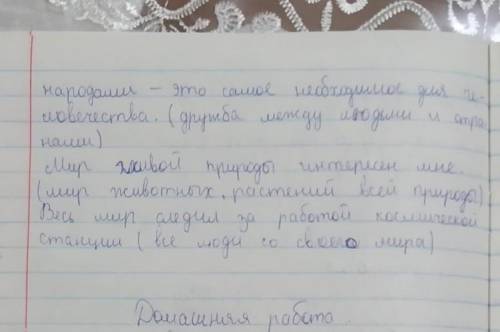 народами – это самое необходимое для че-
ловечества. (дружба между людьми и стра
нами)
Мир живой природы интересен мне.
(мир животных, растений всей природы)
Весь мир следил за работой космической
станции (все люди со своего мира)
Домашняя работа